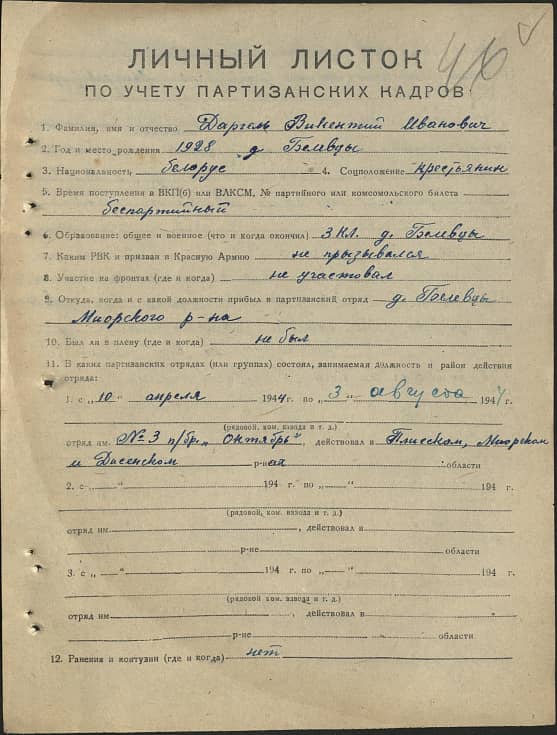 46
ЛИЧНЫЙ ЛИСТОК
ПО УЧЕТУ ПАРТИЗАНСКИХ КАДРОВ
1. Фамилия, имя и отчество Даргель Викентий Иванович
2. Год и место рождения 1928 д Белевцы
3. Национальность белорус 4. Соцположение крестьянин
5. Время поступления в ВКП(б) или ВЛКСМ, № партийного или комсомольского билета
беспартийный
6. Образование: общее и военное (что и когда окончил) 3 кл. д. Белевцы
7. Каким РВК и призван в Красную Армию не призывался
8. Участие на фронтах (где и когда) не участвовал
9. Откуда, когда и с какой должности прибыл в партизанский отряд д. Белевцы
Миорского р-на
10. Был ли в плену (где и когда) не был
11. В каких партизанских отрядах (или группах) состоял, занимаемая должность и район действия
отряда:
1. с „10“ апреля 1944 г. по „3“ августа 1944 г.
(рядовой, ком. взвода и т. д.)
отряд им. № 3 п/бр. „Октябрь“, действовал в Плисском, Миорском
и Дисенском р-нах области
2. с „ “ 194 г. по „ “ 194 г.
(рядовой, ком. взвода и т. д.)
отряд им. , действовал в
р-не области
3. с „ “ 194 г. по „ “ 194 г.
(рядовой, ком. взвода и т. д.)
отряд им. , действовал в
р-не области
12. Ранения и контузии (где и когда) нет